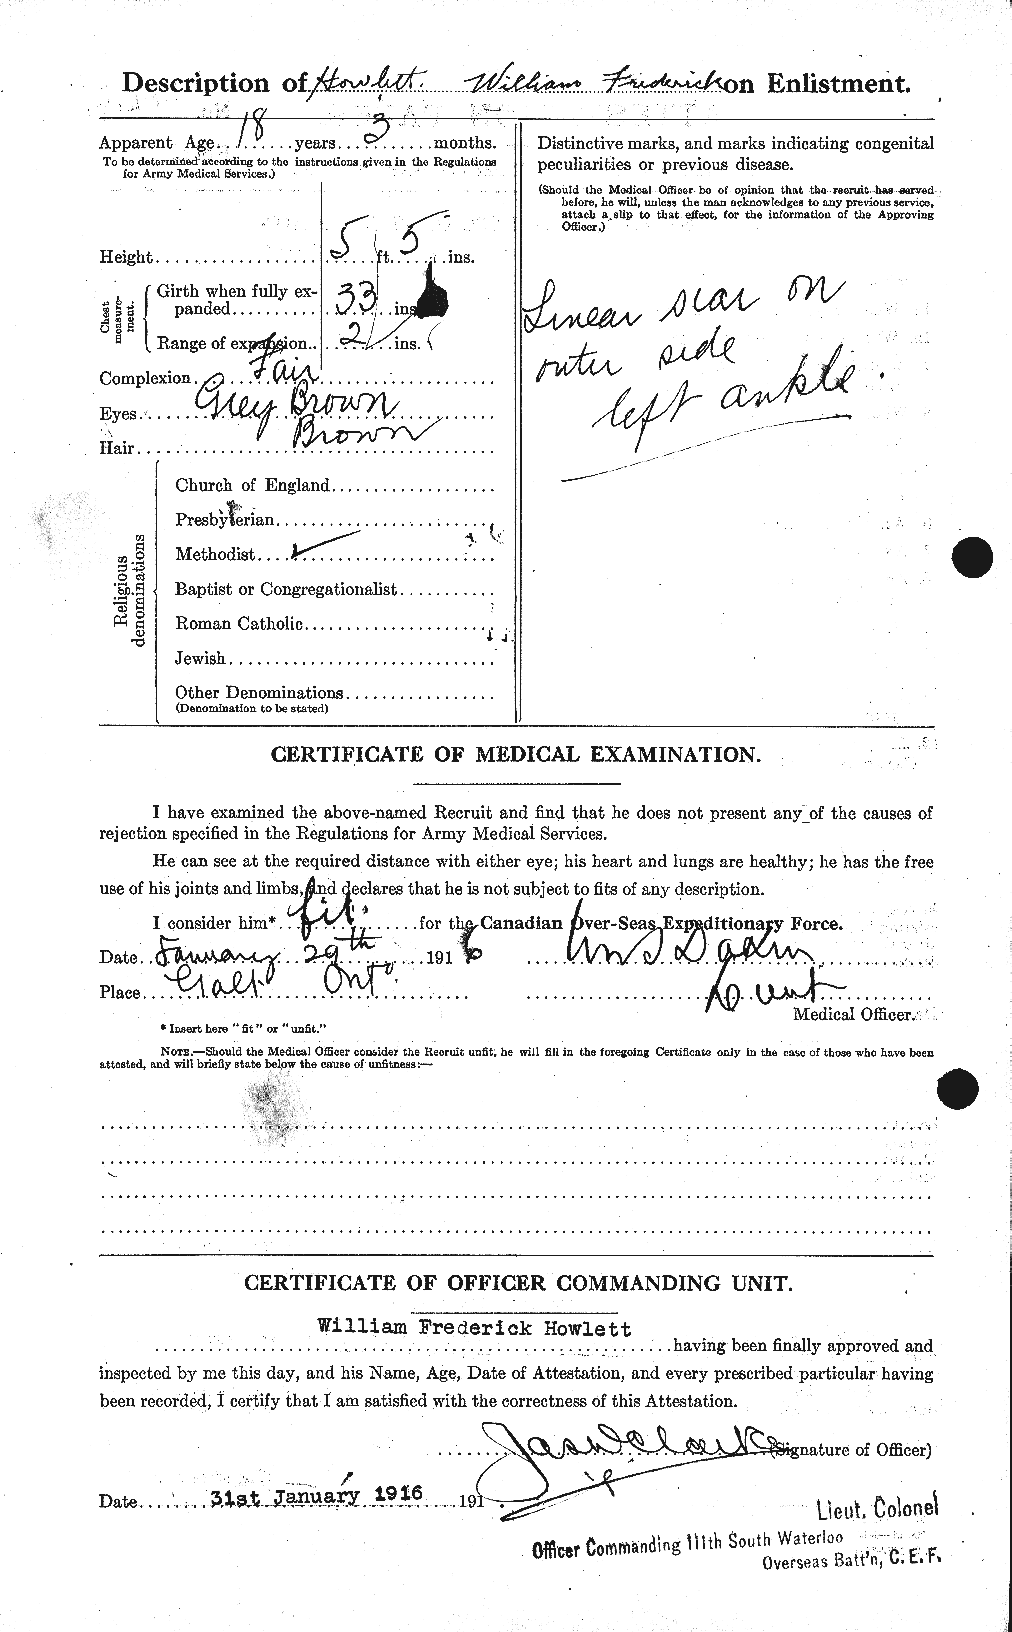 Description of Howlett. William Frederick on Enlistment.
Apparent Age 18 years 3 months.
To be determined according to the instructions given in the Regulations
for Army Medical Services.)
Height 5 ft. 5 ins.
Chest measurement.
Girth when fully ex-
panded 33 ins
Range of expansion 2 ins.
Complexion Fair
Eyes Grey Brown
Hair Brown
Religious denominations
Church of England
Presbyterian
Methodist ✓
Baptist or Congregationalist
Roman Catholic
Jewish
Other Denominations
(Denomination to be stated)
Distinctive marks, and marks indicating congenital
peculiarities or previous disease.
(Should the Medical Officer be of opinion that the recruit has served
before, he will, unless the man acknowledges to any previous service,
attach a slip to that effect, for the information of the Approving
Officer.)
Linear scar on
outer side
left ankle.
CERTIFICATE OF MEDICAL EXAMINATION.
I have examined the above-named Recruit and find that he does not present any of the causes of
rejection specified in the Regulations for Army Medical Services.
He can see at the required distance with either eye; his heart and lungs are healthy; he has the free
use of his joints and limbs, and declares that he is not subject to fits of any description.
I consider him* fit for the Canadian Over-Seas Expeditionary Force.
Date January 29th 1916
Place Galt Ont.
Lieut
Medical Officer.
* Insert here "fit" or "unfit."
NOTE.—Should the Medical Officer consider the Recruit unfit, he will fill in the foregoing Certificate only in the case of those who have been
attested, and will briefly state below the cause of unfitness:—
CERTIFICATE OF OFFICER COMMANDING UNIT.
William Frederick Howlett
having been finally approved and
inspected by me this day, and his Name, Age, Date of Attestation, and every prescribed particular having
been recorded, I certify that I am satisfied with the correctness of this Attestation.
Jas W Clark (Signature of Officer)
Date 31st January 1916 191
Lieut. Colonel
Officer Commanding 111th South Waterloo
Overseas Batt'n, C. E. F.